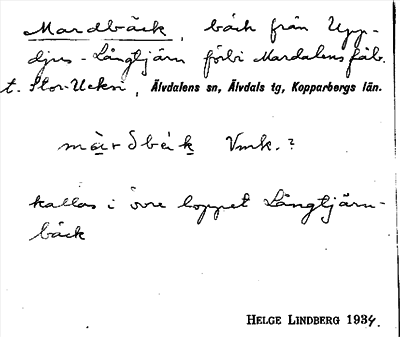 Mardbäck, bäck från Upp-
djus-Långtjärn förbi Mardalens fäb.
t. Stor-Ucksi, Älvdalens sn, Älvdals tg, Kopparbergs län.
Vmk.?
kallas i övre loppet Långtjärn-
bäck
HELGE LINDBERG 1934.